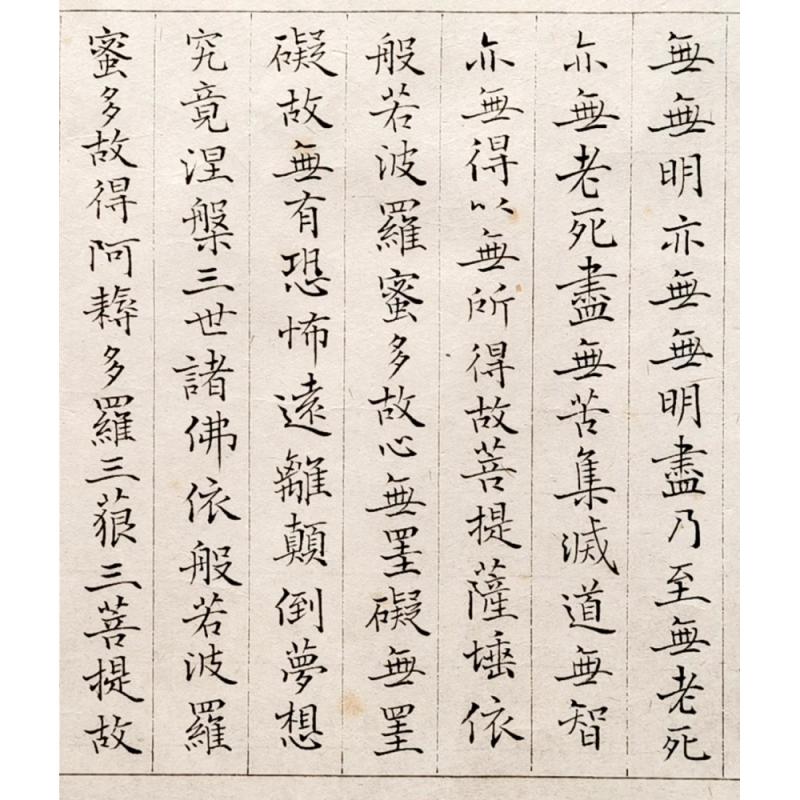 無無明亦無無明盡乃至無老死
亦無老死盡無苦集滅道無智
亦無得以無所得故菩提薩埵依
般若波羅蜜多故心無罣礙無罣
礙故無有恐怖遠離顛倒夢想
究竟涅槃三世諸佛依般若波羅
蜜多故得阿耨多羅三藐三菩提故